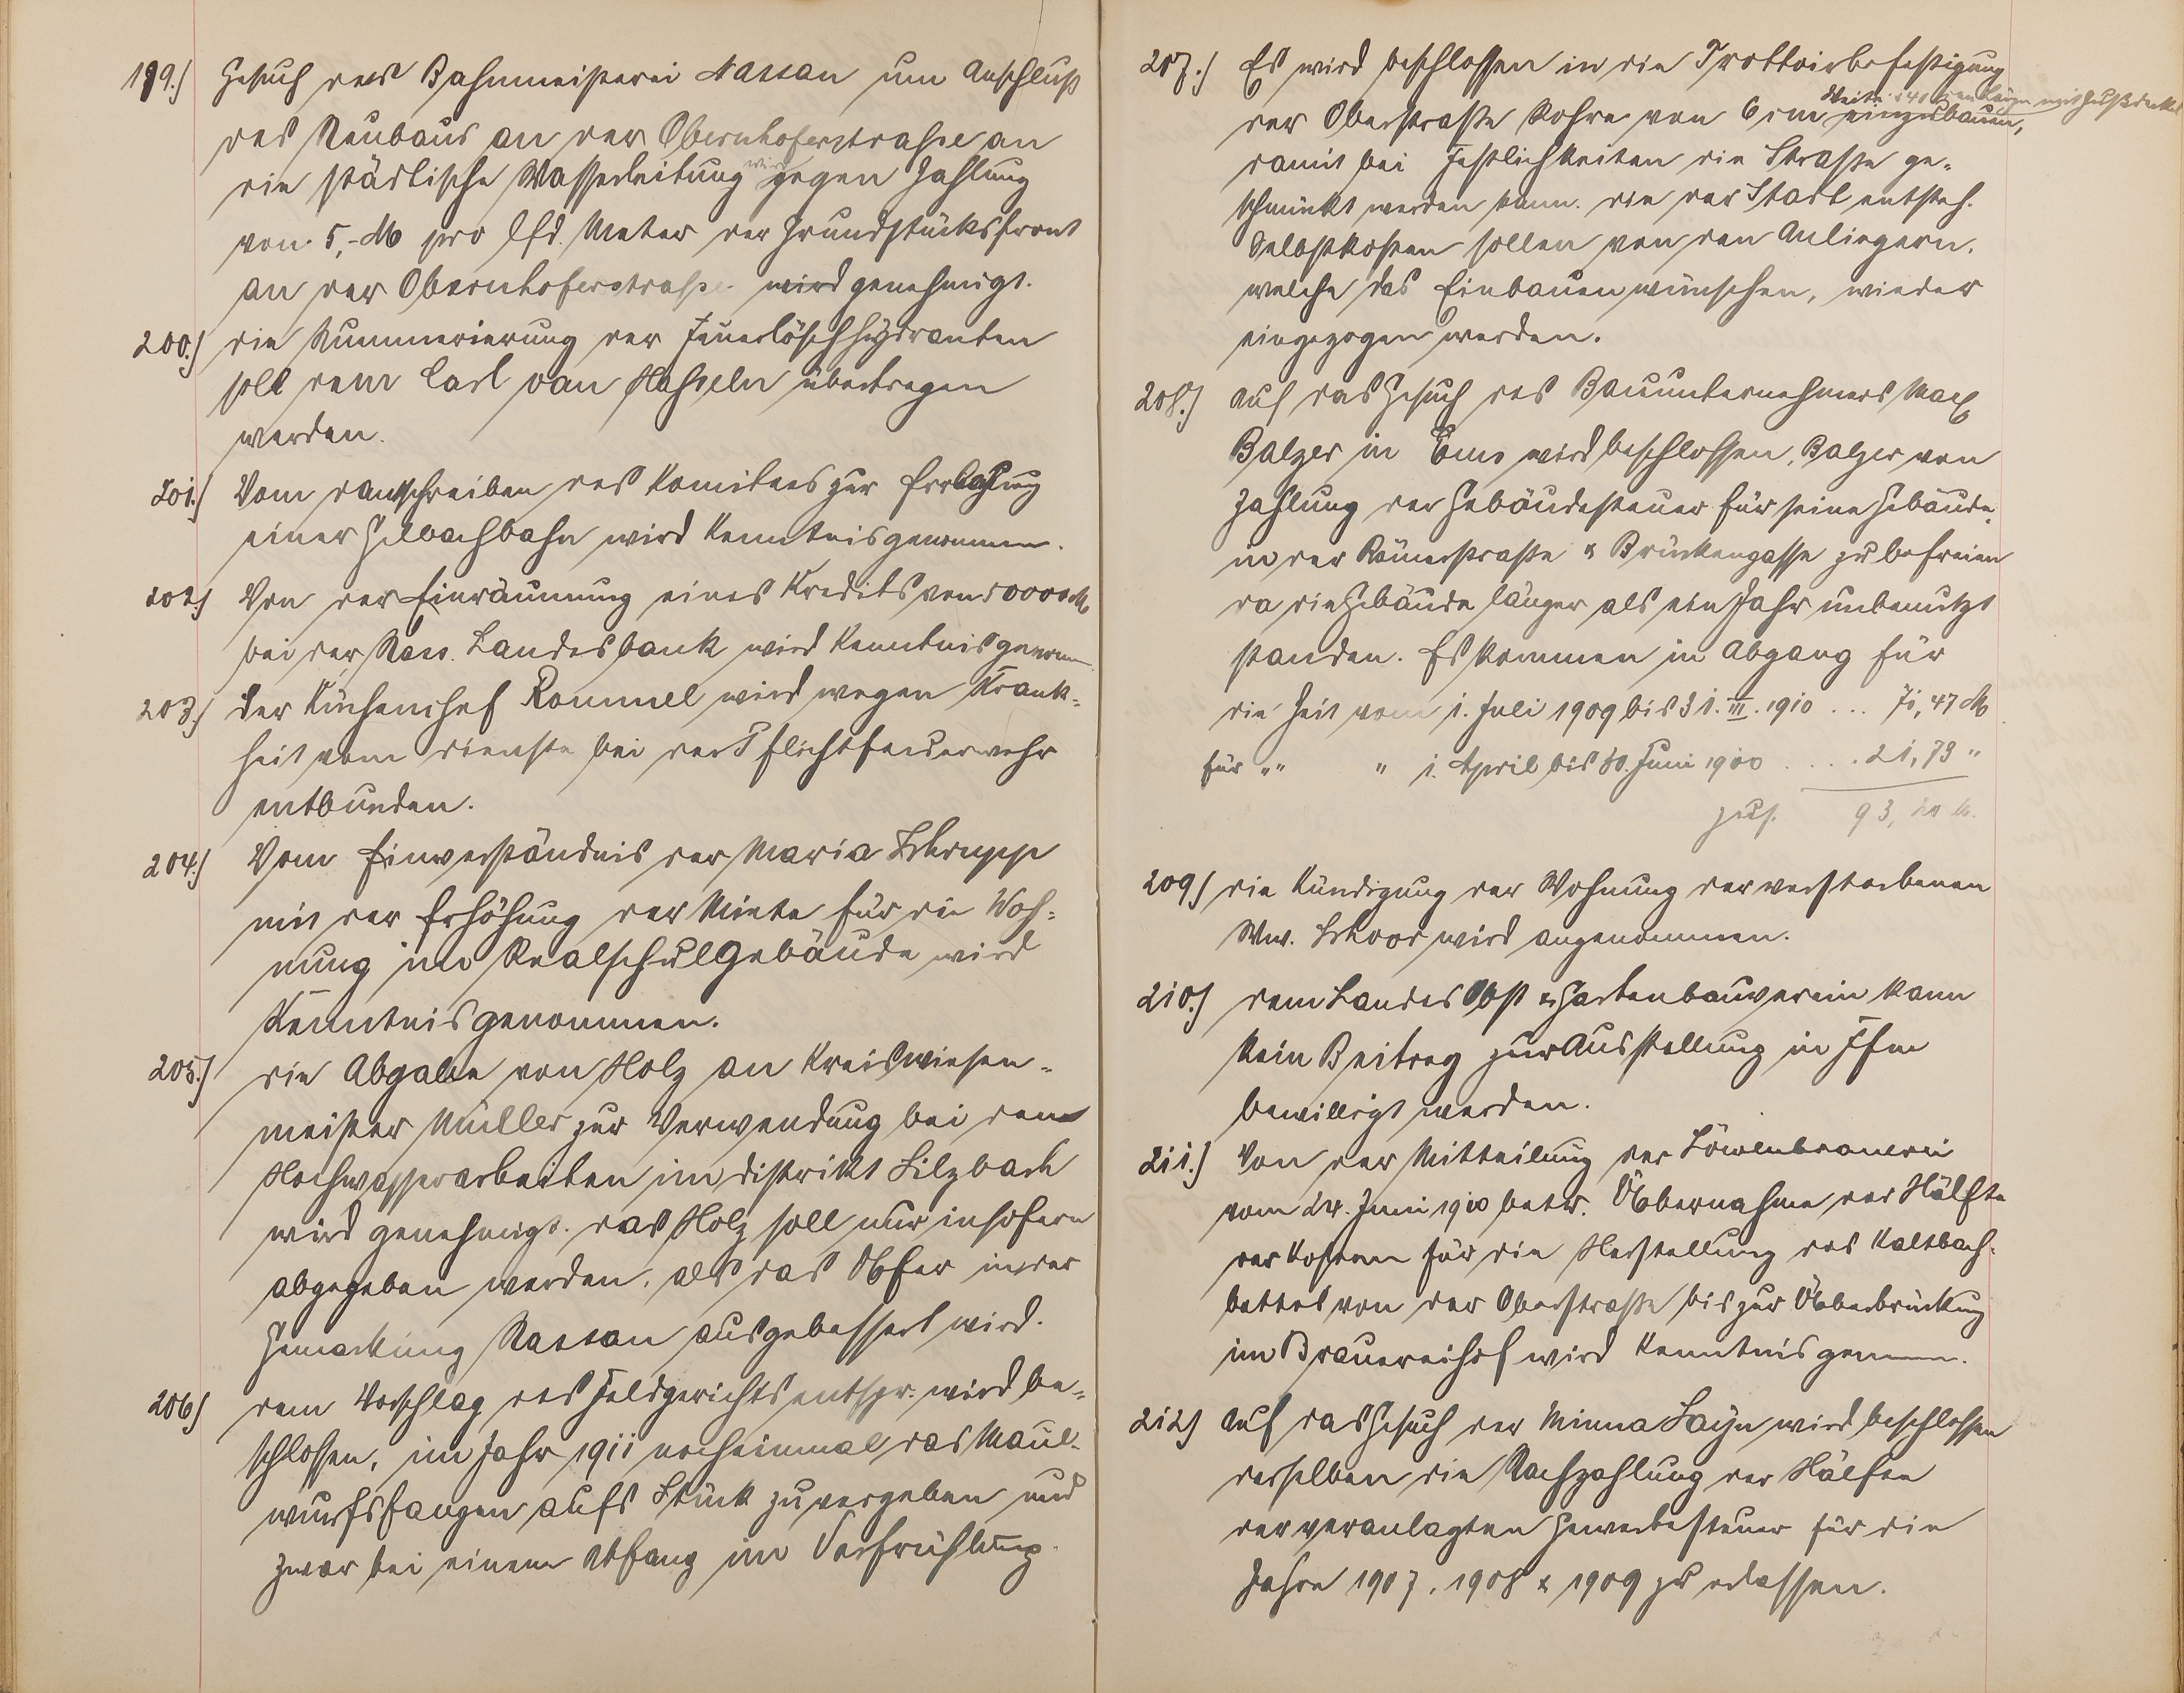 199.) Gesuch der Bahnmeisterei Nassau um Anschluß
des Neubaus an der Obernhoferstraße an
die städtische Wasserleitung wird gegen Zahlung
von 5,- M pro lfd. Meter der Grundstücksfront
an der Obernhoferstraße wird genehmigt.
200.) Die Nummerierung der Feuerlöschhydranten
soll dem Carl van Hasseln übertragen
werden.
201.) Vom Dankschreiben des Komitees zur Erbauung
einer Gelbachbahn wird Kenntnis genommen.
202.) Von der Einräumung eines Kredits von 50000 M
bei der Nass. Landesbank wird Kenntnis genomm
203.) Der Küchenchef Rommel wird wegen Krank-
heit vom Dienste bei der Pflichtfeuerwehr
entbunden.
204.) Vom Einverständnis der Maria Schrupp
mit der Erhöhung der Miete für die Woh-
nung im Realschulgebäude wird
Kenntnis genommen.
205.) Die Abgabe von Holz an Kreiswiesen-
meister Müller zur Verwendung bei den
Hochwasserarbeiten im Distrikt Silzbach
wird genehmigt. Das Holz soll nur insofern
abgegeben werden, als das Ufer in der
Gemarkung Nassau ausgebessert wird.
206.) Dem Vorschlag des Feldgerichts entspr. wird be-
schlossen, im Jahr 1911 nocheinmal das Maul-
wurfsfangen aufs Stück zu vergeben und
zwar bei einem Abfang im Vorfrühling.
207.) Es wird beschlossen in die Trottoirbefestigung
der Oberstraße Rohre von 6 cm Weite 40 cm Länge mit Gußdeckel einzubauen,
damit bei Festlichkeiten die Straße ge-
schmückt werden kann. Die der Stadt entsteh.
Selbstkosten sollen von den Anliegern,
welche das Einbauen wünschen, wieder
eingezogen werden.
208.) Auf das Gesuch des Bauunternehmers Max
Balzer in Ems wird beschlossen, Balzer von
Zahlung der Gebäudesteuer für seine Gebäude
in der Römerstraße & Brückengasse zu befreien
da die Gebäude länger als ein Jahr unbenutzt
standen. Es kommen in Abgang für
die Zeit vom 1. Juli 1909 bis 31. III. 1910 ... 71,47 M
für " " " 1. April bis 30. Juni 1910 .... 21,73 "
zus. 93,20 M.
209.) Die Kündigung der Wohnung der verstorbenen
Ww. Schoor wird angenommen.
210.) Dem Landes Obst & Gartenbauverein kann
kein Beitrag zur Ausstellung in
bewilligt werden.
211.) Von der Mitteilung der Löwenbrauerei
vom 24. Juni 1910 betr. Übernahme der Hälfte
der Kosten für die Herstellung des Kaltbach-
bettes von der Oberstraße bis zur Überbrückung
im Brauereihof wird Kenntnis genomm.
212.) Auf das Gesuch der Minna Sayn wird beschlossen
derselben die Nachzahlung der Hälfte
der veranlagten Gewerbesteuer für die
Jahre 1907, 1908 & 1909 zu erlassen.